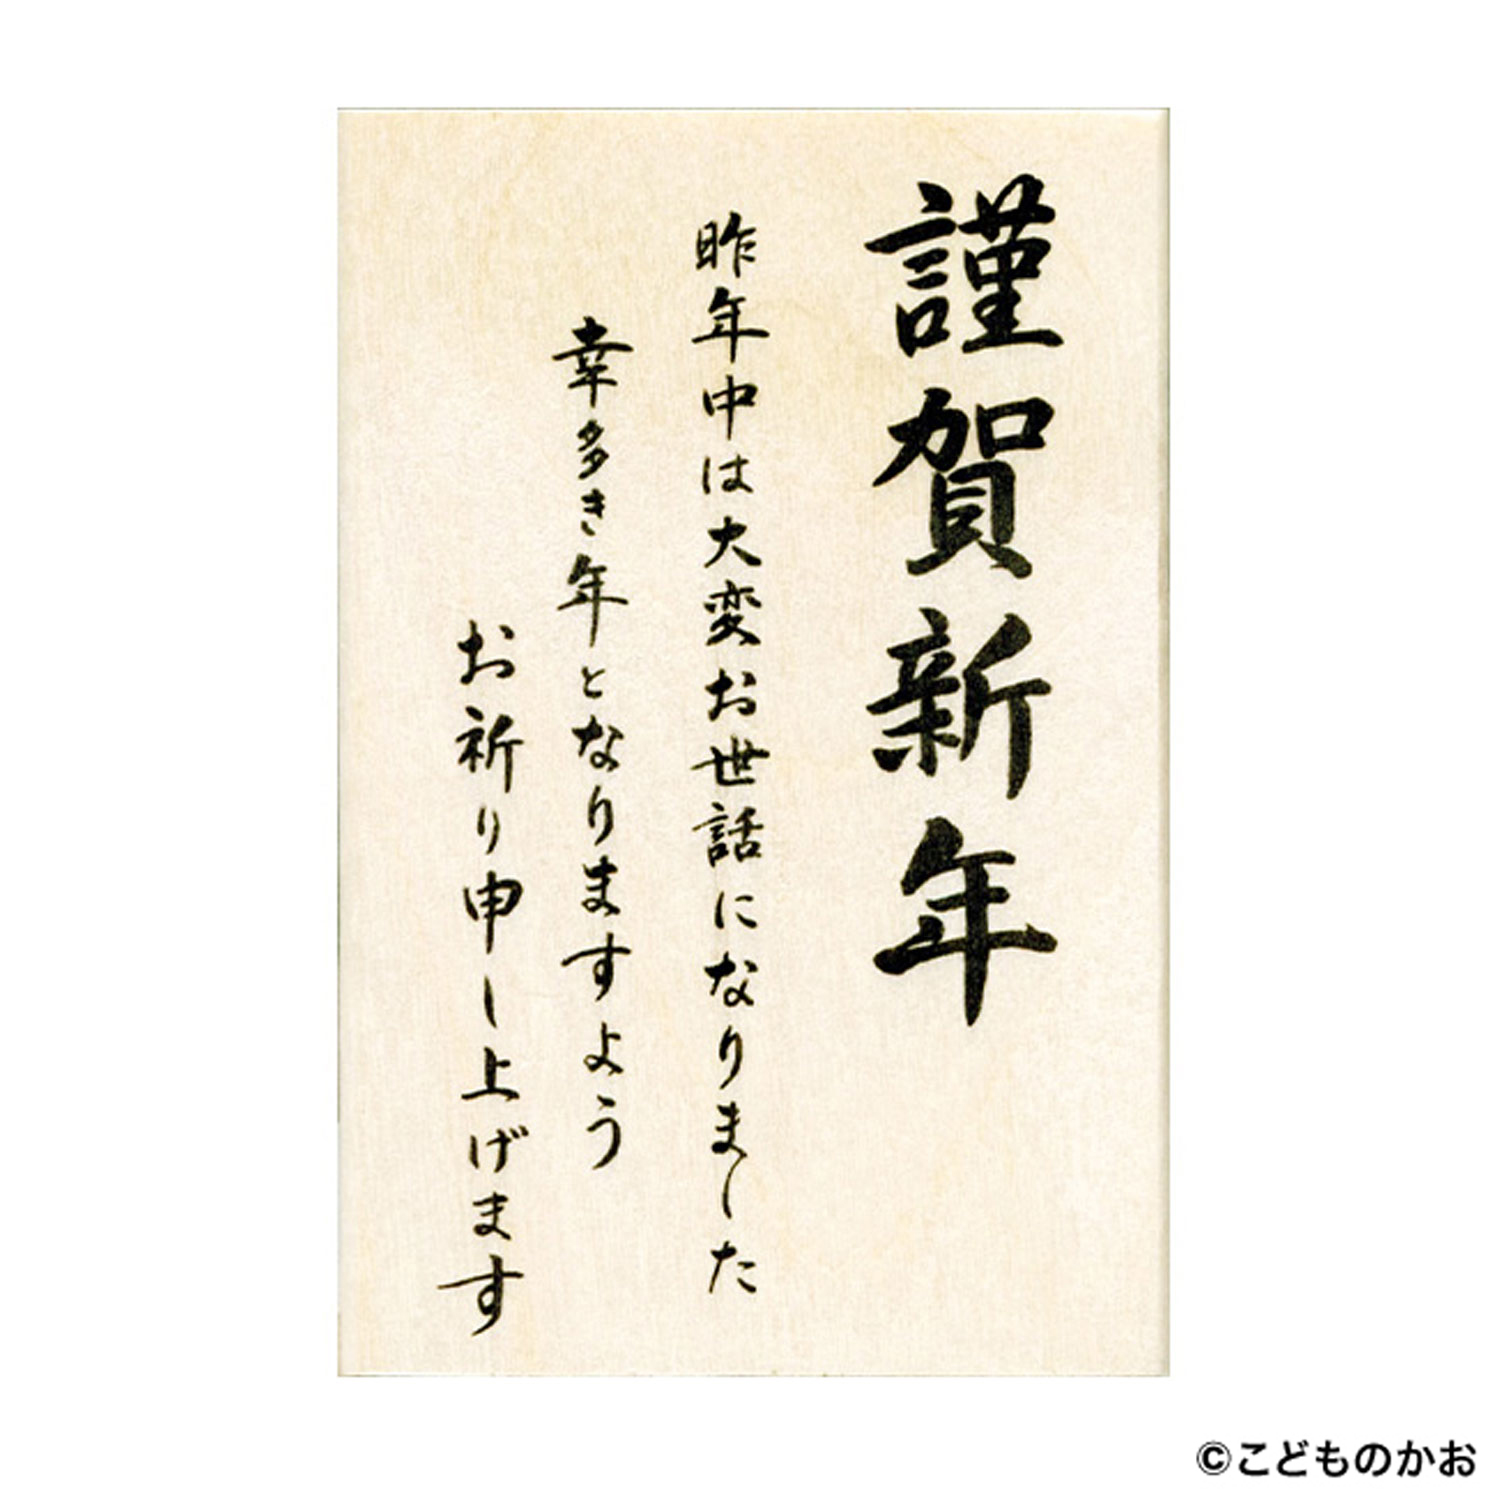 謹賀新年
昨年中は大変お世話になりました
幸多き年となりますよう
お祈り申し上げます
©こどものかお